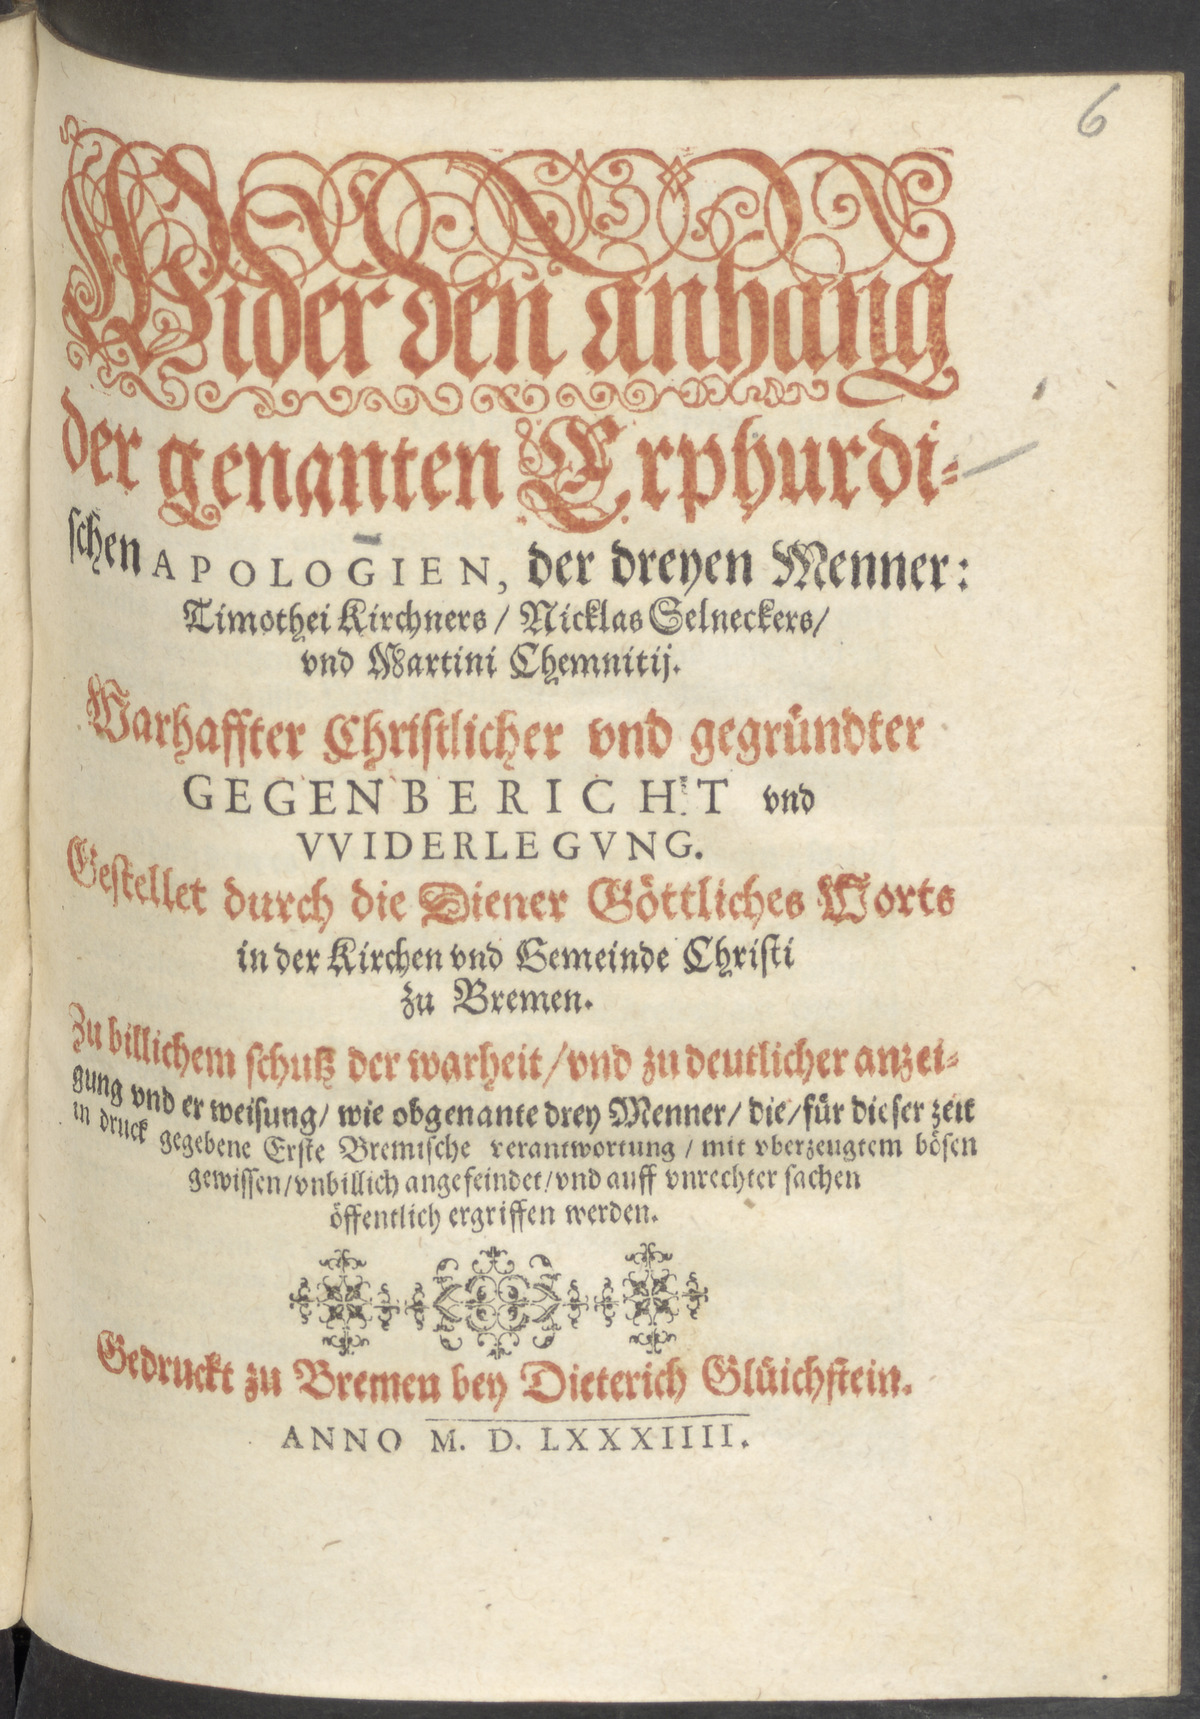 6
Wider den anhang
der genanten Erphurdi-
schen APOLOGIEN, der dreyen Menner:
Timothei Kirchners / Nicklas Selneckers /
vnd Martini Chemnitij.
Warhaffter Christlicher vnd gegründter
GEGENBERICHT vnd
VVIDERLEGVNG.
Gestellet durch die Diener Göttliches Worts
in der Kirchen vnd Gemeinde Christi
zu Bremen.
Zu billichem schutz der warheit / vnd zu deutlicher anzei-
gung vnd er weisung / wie obgenante drey Menner / die / für dieser zeit
in druck gegebene Erste Bremische verantwortung / mit vberzeugtem bösen
gewissen / vnbillich angefeindet / vnd auff vnrechter sachen
öffentlich ergriffen werden.
Gedruckt zu Bremen bey Dieterich Glüichstein.
ANNO M. D. LXXXIIII.